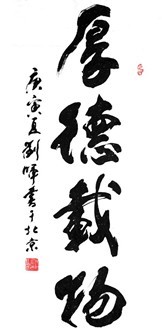 厚德載物
庚寅夏劉暉書于北京